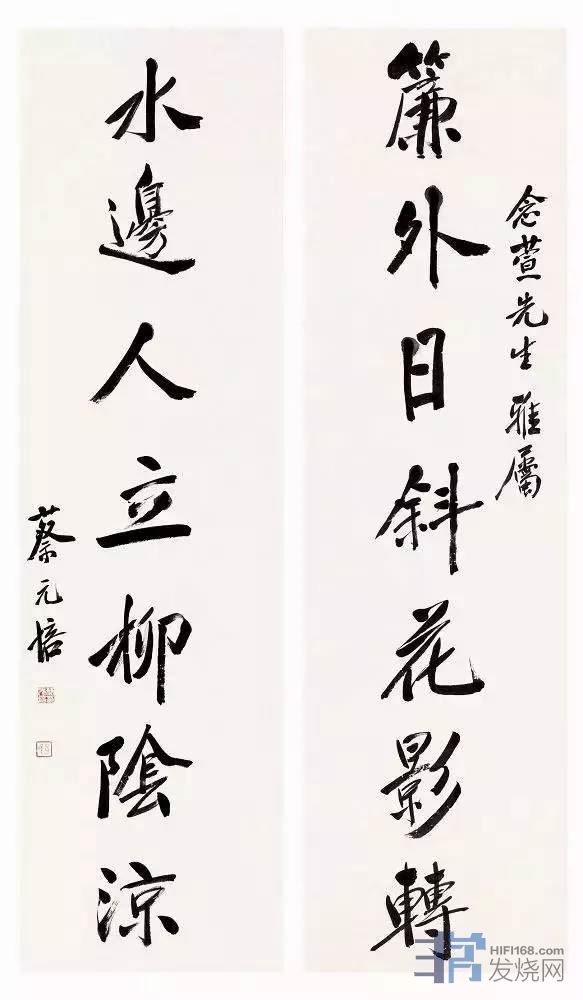 念萱先生雅屬
簾外日斜花影轉
水邊人立柳陰涼
蔡元培
HIFI168.com
发烧网